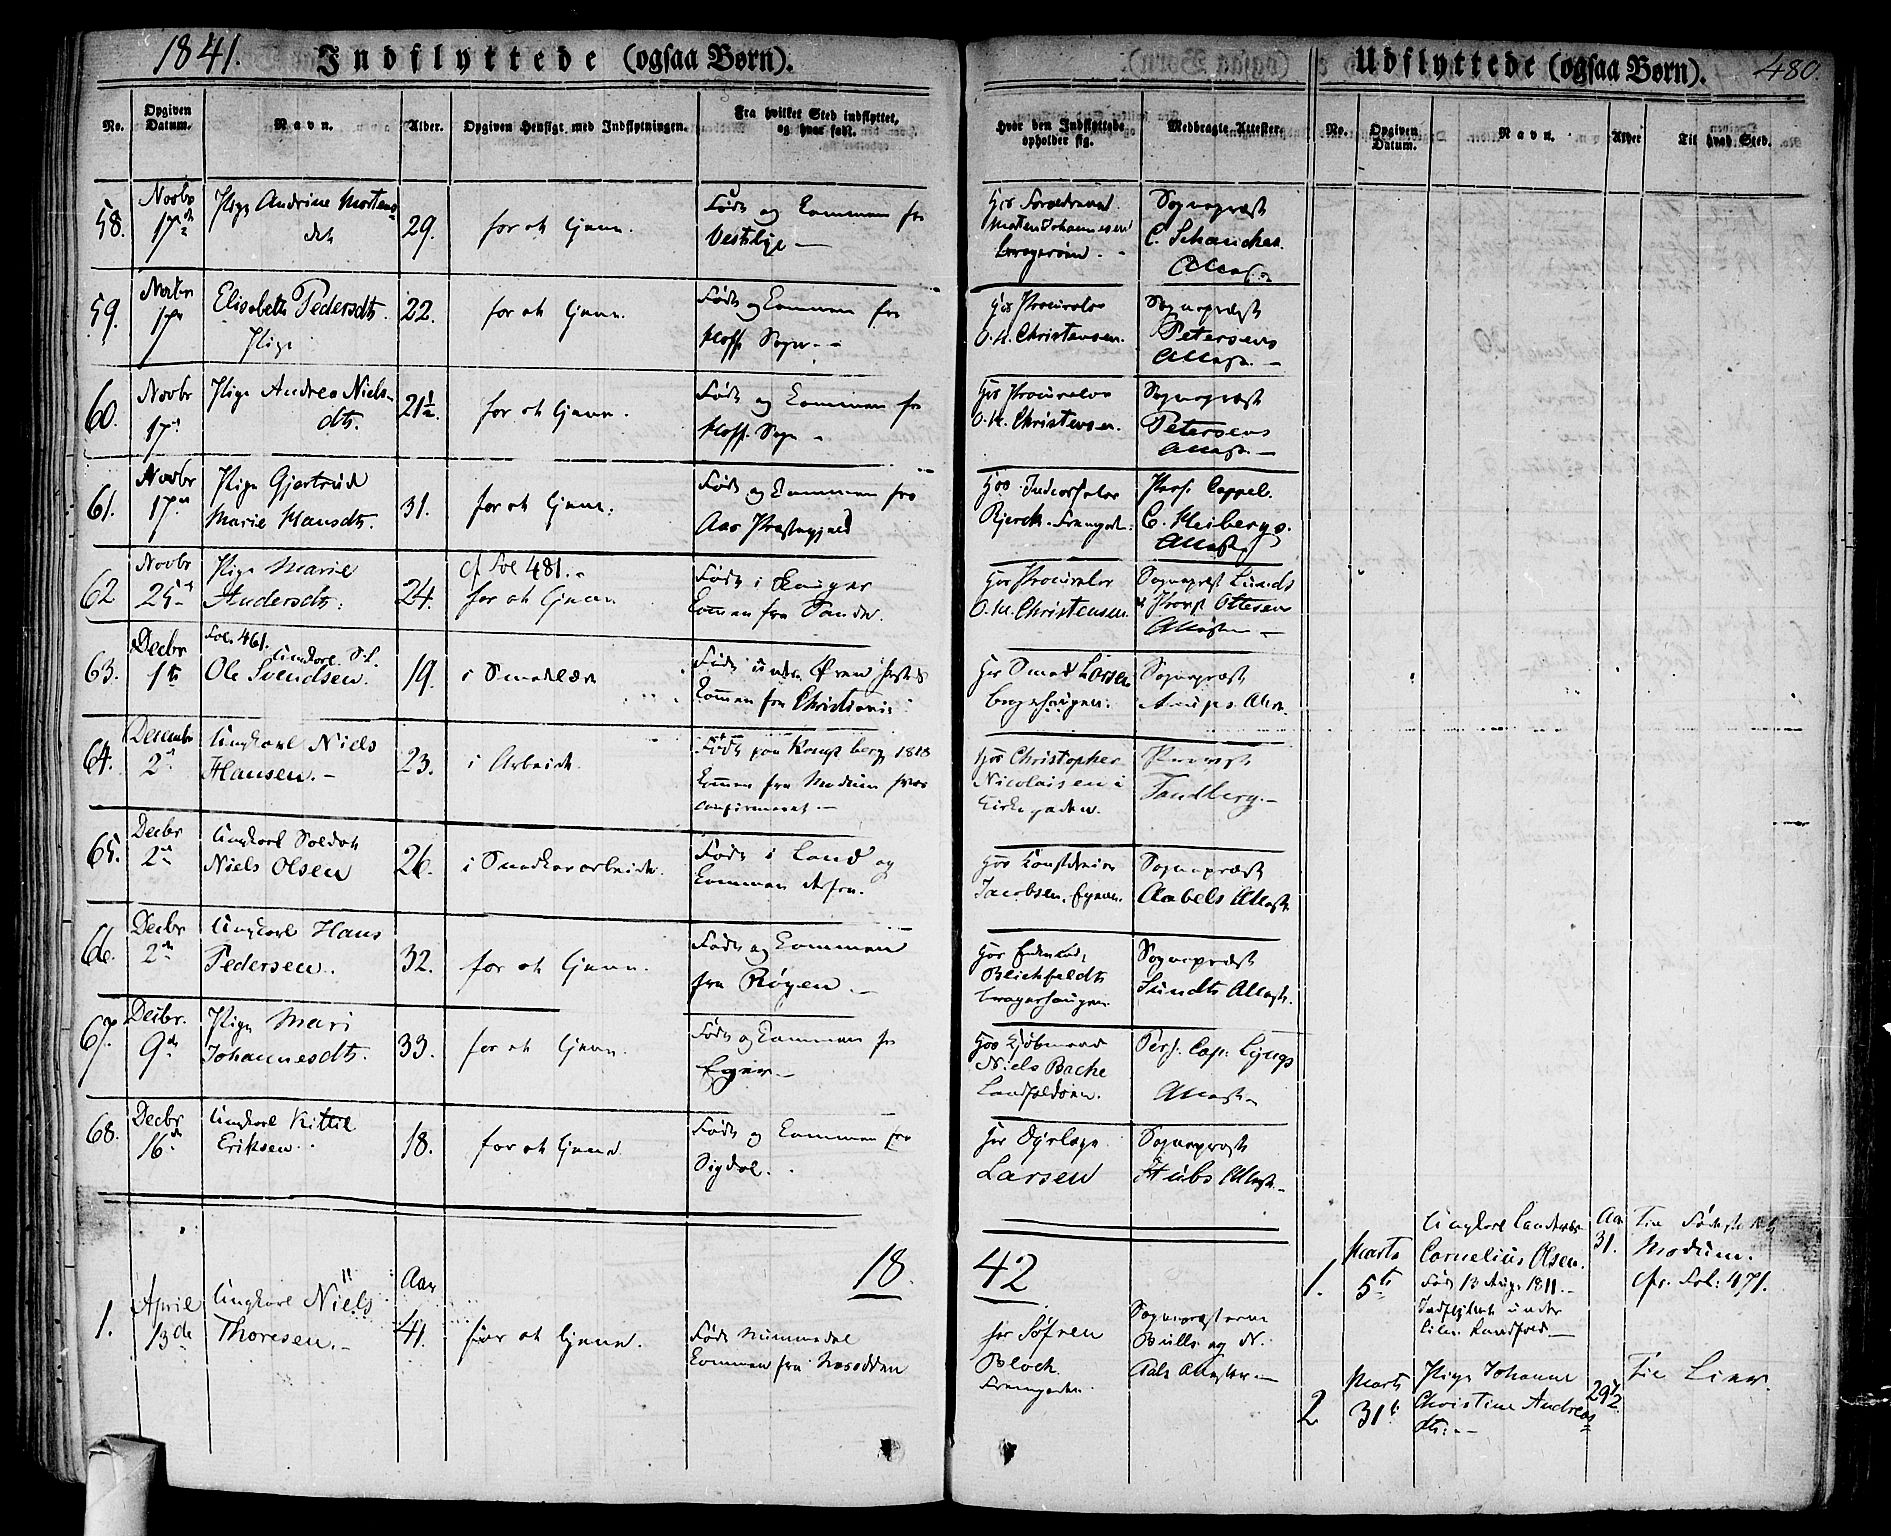 1841.
Indflyttede (ogsaa Børn).
No.
Opgiven Datum.
Navn.
Alder.
Opgiven Hensigt med Indflytningen.
Fra hvilket Sted indflyttet, og hvor født.
58.
Novbr 17de
Pige Andrine Mortens
dtr
29.
for at tjene.
Født og kommen fra
Vestbye —
59.
Novbr 17de
Elisabeth Pedersdtr.
Pige
22.
for at tjene.
Født og kommen fra
Hoff Sogn. -
60.
Novbr 17de
Pige Andrea Niels
dtr.
21½.
for at tjene.
Født og kommen fra
Hoff. Sogn -
61.
Novbr 17de
Pige Gjertrud
Marie Hansdtr.
31.
for at tjene.
Født og kommen fra
Aas Præstegjeld
62
Novbr 25de
Pige Marie
Andersdtr.
24.
cf Fol 481. -
for at tjene
Født i Eniger
kommen fra Sande.
63.
Decbr 1ste
Fol. 461.
Ungkarl S.L.
Ole Svendsen.
19.
i Smedelære
Født under
kommen fra Christiania
64.
Decembr 2de
Ungkarl Niels
Hansen. -
23.
i Arbeide.
Født paa Kongsberg 1818
kommen fra Modum hvor
confirmeret —
65.
Decbr 2de
Ungkarl Soldat
Niels Olsen
26.
i Snedkerarbeide.
Født i Land og
kommen derfra.
66.
Decbr 2de
Ungkarl Hans
Pedersen.
32.
for at tjene.
Født og kommen
fra Røgen. —
67.
Decbr. 9de
Pige Mari
Johannesdtr.
33.
for at tjene.
Født og kommen fra
Eger. —
68.
Decbr 16de
Ungkarl Kittil
Eriksen.
18.
for at tjene
Født og kommen fra
Sigdal.
18.
1.
April 13de
Ungkarl Niels
Thoresen. -
Aar
41.
for at tjene.
Født Nummedal
kommen fra Næsodden
Hvor den Indflyttede opholder sig.
Medbragte Attester.
Hos Forældrene
Morten Johannesen
Bragerøen. -
Sognepræst
C. Schanckes
Attest.
Hos Procurator
O. H. Christensen.
Sognepræst
Petersens
Attest. —
Hos Procurator
O. H. Christensen.
Sognepræst
Petersens
Attest. —
Hos
Bjerck.
Pers. Cappel.
C. Heibergs.
Attest
Hos Procurator
O. H. Christensen.
Sognepræst Lunds
Provst Ottesens
Attester —
Hos Smed Larsen
Bragehaugen.
Sognepræst
Hos Christopher
Nicolaisen i
Kirkegaden.
Provst
Tandberg. —
Hos
Jacobsen.
Sognepræst
Aabels Attest.
Hos
Blichfeldts
Bragerhaugen
Sognepræst
Sundts Attest.
Hos Kjøbmand
Niels Bache
Landfaldøen.
Pers. Cap: Ljungs
Attest -
Hos Dyrlæge
Larsen
Sognepræst
Hubs Attest. -
42
hos Søfren
Block
Sognepræsterne
Bulls og N.
Dals Attester —
Udflyttede (ogsaa Børn).
480.
No.
Opgiven Datum.
Navn.
Alder
Til hvad Sted.
1.
Marts 5te
Ungkarl
Cornelius Olsen.
Født 13 Aug. 1811. -
Indflyttet under
Aar
31.
Til Fødested
Modum.
cfr. Fol: 471.
2
Marts 31te
Pige Johanne
Christine Andreas
dtr. -
29½.
Til Lier.